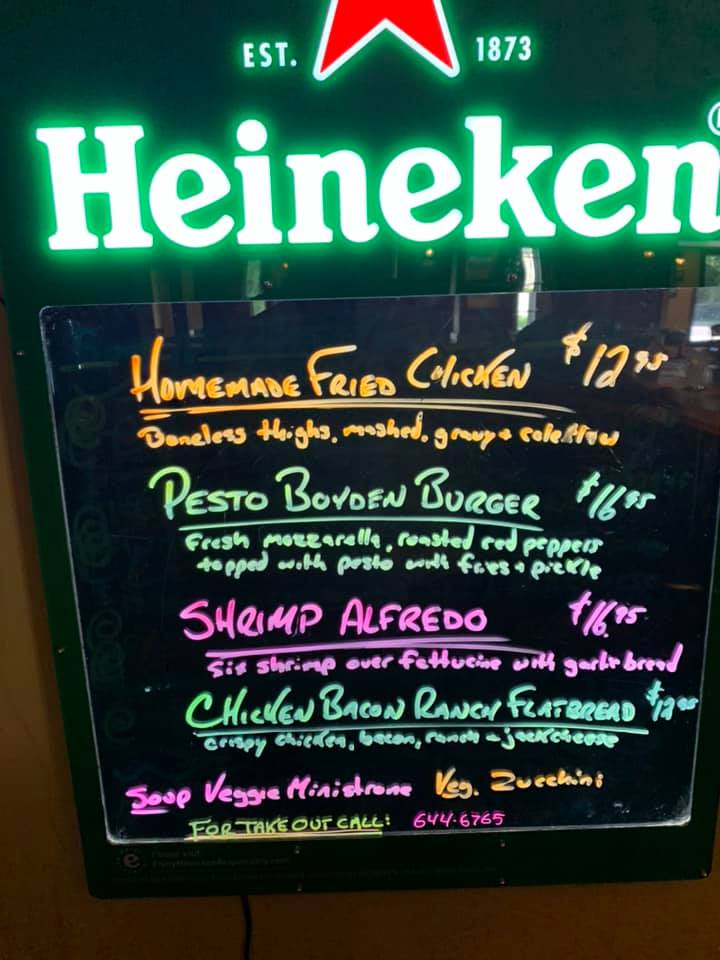 EST. 1873
Heineken
HOMEMADE FRIED CHICKEN $12.95
Boneless thighs, mashed, gravy + coleslaw
PESTO BOYDEN BURGER $16.95
Fresh mozzarella, roasted red peppers
topped with pesto with fries + pickle
SHRIMP ALFREDO $16.95
Six shrimp over fettucine with garlic bread
CHICKEN BACON RANCH FLATBREAD $12.95
crispy chicken, bacon, ranch + jack cheese
Soup Veggie Ministrone Veg. Zucchini
FOR TAKE OUT CALL: 644-6765